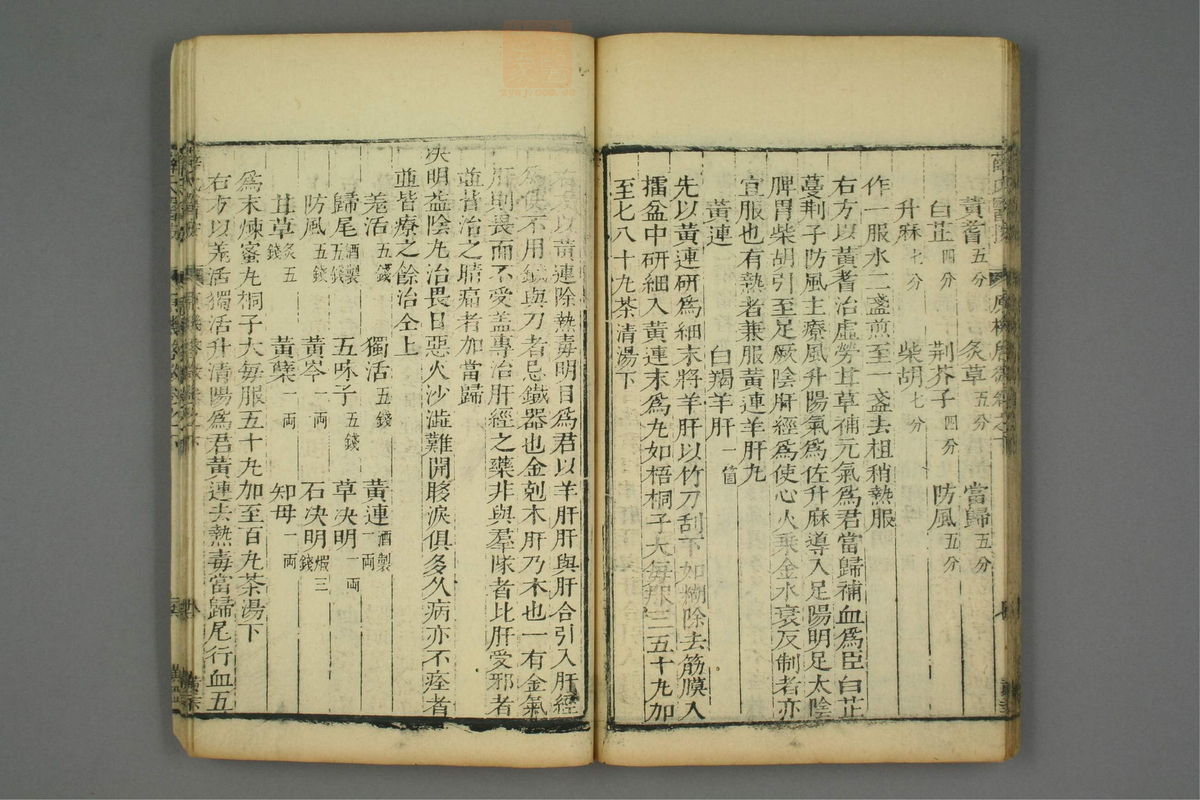 黃耆五分 炙草五分 當歸五分
白芷四分 荆芥子四分 防風五分
升麻七分 柴胡七分
作一服水二盞煎至一盞去柤稍熱服
右方以黃耆治虛勞甘草補元氣爲君當歸補血爲臣白芷
蔓荆子防風主療風升陽氣爲佐升麻導入足陽明足太陰
脾胃柴胡引至足厥陰肝經爲使心火乘金水衰反制者亦
宜服也有熱者兼服黃連羊肝丸
黃連一 白羯羊肝一箇
先以黃連研爲細末將羊肝以竹刀刮下如糊除去筋膜入
擂盆中研細入黃連末爲丸如梧桐子大每服三五十丸加
至七八十丸茶清湯下
右方以黃連除熱毒明目爲君以羊肝肝與肝合引入肝經
爲使不用鐵與刀者忌鐵器也金剋木肝乃木也一有金氣
肝則畏而不受盖專治肝經之藥非與羣隊者比肝受邪者
並皆治之睛痛者加當歸
决明益陰丸治畏日惡火沙澁難開眵淚俱多久病亦不痊者
並皆療之餘治仝上
羗活五錢 獨活五錢 黃連酒製一両
歸尾酒製五錢 五味子五錢 草决明一両
防風五錢 黃芩一両 石决明煆三錢
甘草炙五錢 黃蘗一両 知母一両
爲末煉蜜丸桐子大每服五十丸加至百丸茶湯下
右方以羗活獨活升清陽爲君黃連去熱毒當歸尾行血五